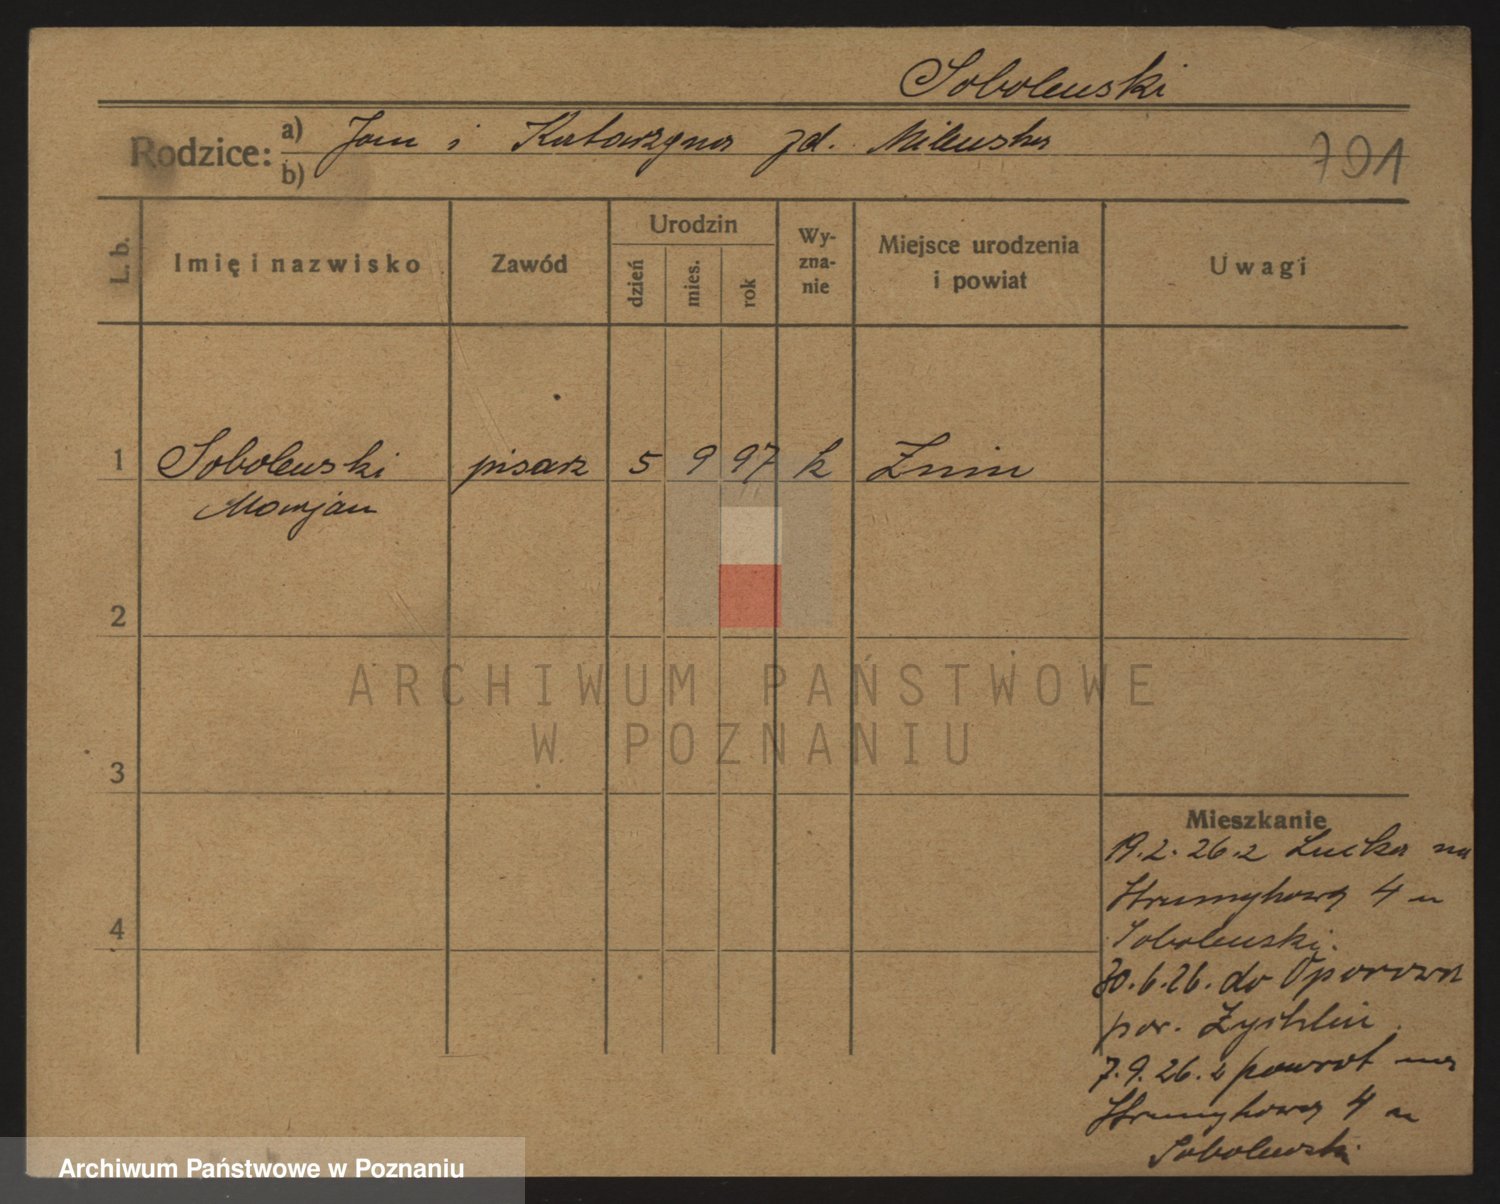 Sobolewski
Rodzice: a) Jan i Katarzyna zd. Milewska
b)
791
L. b.
Imię i nazwisko
Zawód
Urodzin
dzień
mies.
rok
Wy-
zna-
nie
Miejsce urodzenia
i powiat
Uwagi
1 Sobolewski pisarz 5 9 97 k Żnin
Marjan
2
3
4
Mieszkanie
19.2.26. z na
Strumykową 4 u
Sobolewski.
30.6.26. do
Żychlin
7.9.26. z powrot na
Strumykową 4 u
Sobolewski
ARCHIWUM PAŃSTWOWE
W POZNANIU
Archiwum Państwowe w Poznaniu